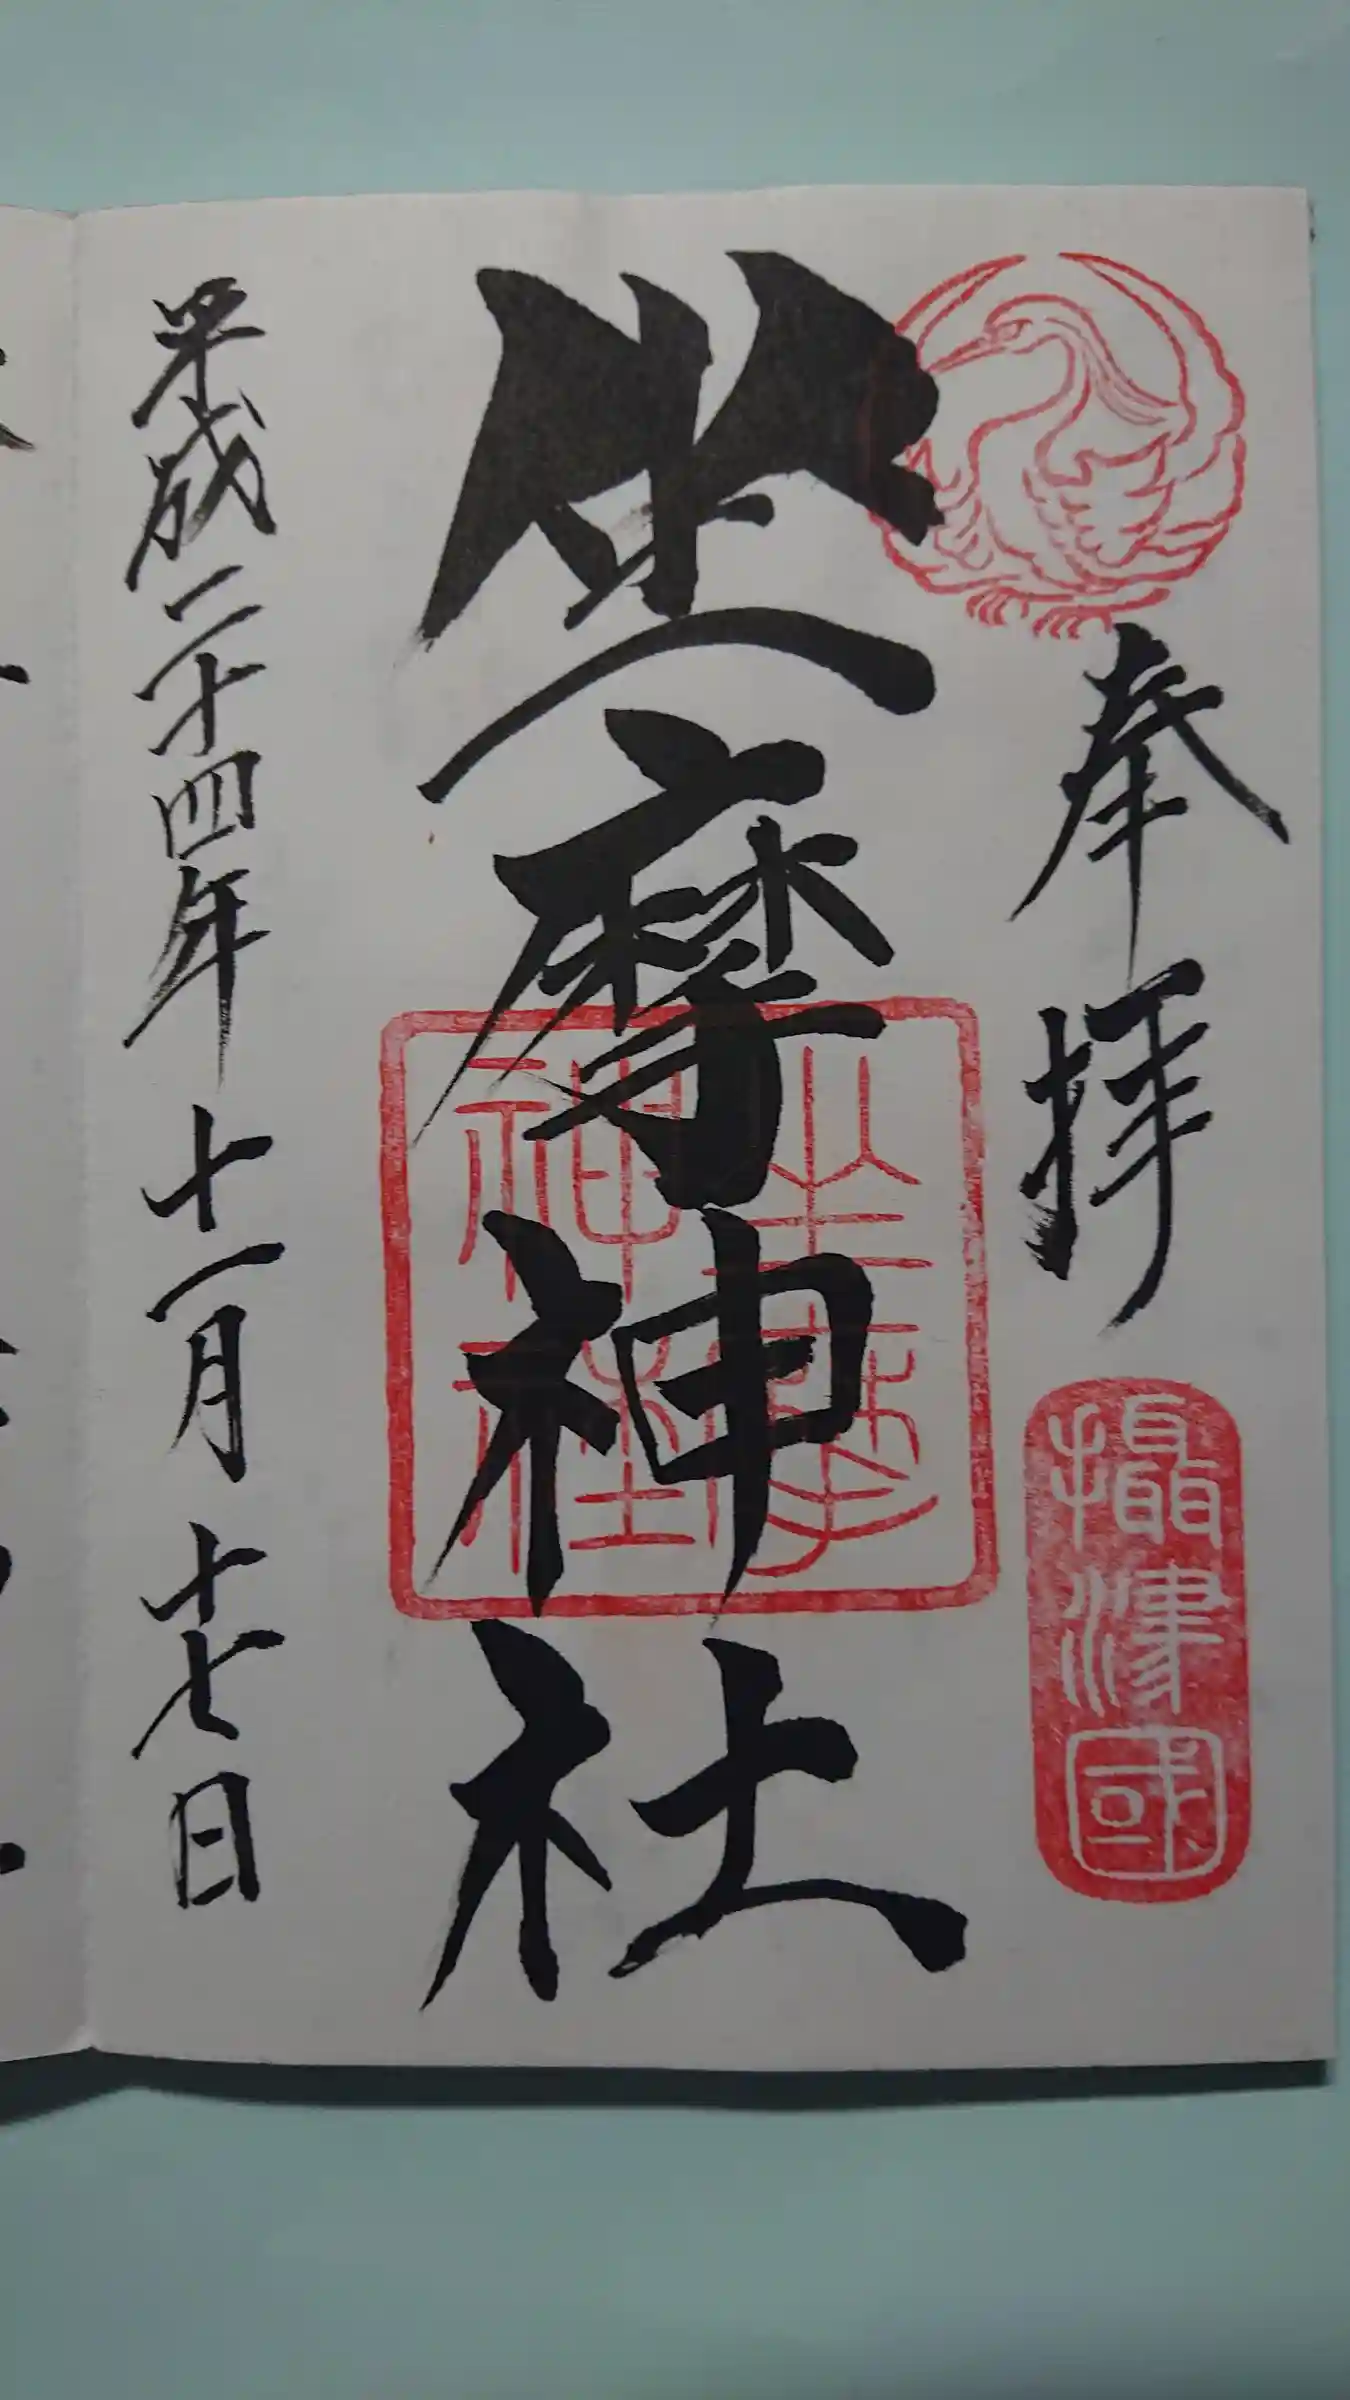 奉拝
攝津國
坐摩神社
坐摩神社
平成二十四年十一月十七日